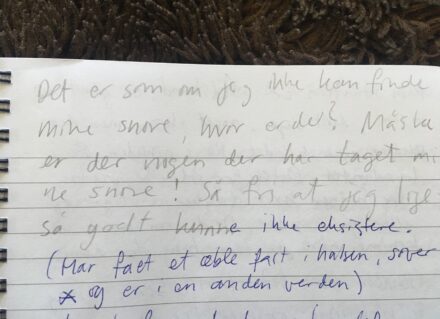 Det er som om jeg ikke kan finde
mine snore, hvor er de? Måske
er der nogen der har taget mi
ne snore! Så fri at jeg lige
så godt kunne ikke eksistere.
(Har fået et æble fast i halsen, sover
og er i en anden verden)